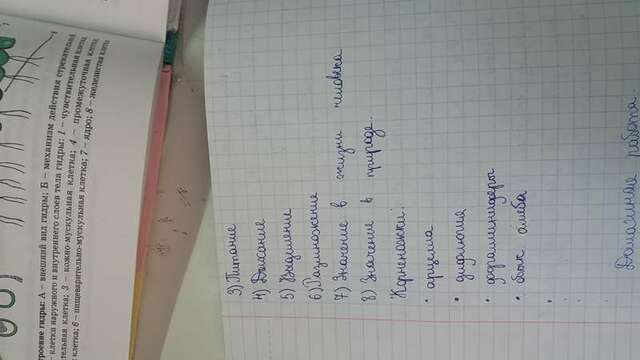 троение гидры: А – внешний вид гидры; Б – механизм действия стрекательной
клетки наружного и внутреннего слоев тела гидры: 1 – чувствительная клетка;
тельная клетка; 3 – кожно-мускульная клетка; 4 – промежуточная клетка;
клетка; 6 – пищеварительно-мускульная клетка; 7 – ядро; 8 – железистая клетка
3) Питание
4) Дыхание
5) Выделение
6) Размножение
7) Значение в жизни человека
8) Значение в природе.
Корненожки:
• арцелла
• диффлюгия
• фораминиферы
• обык амёба
Домашняя работа.